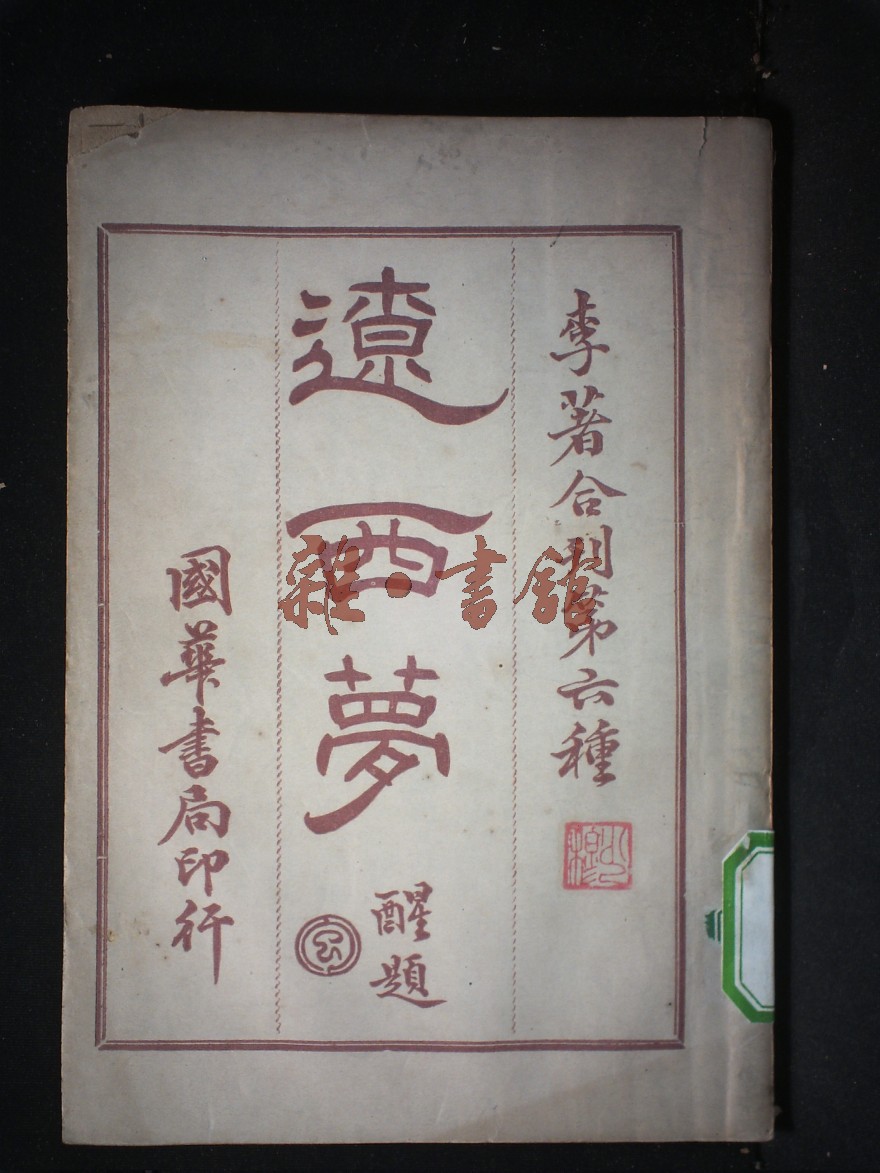 李著合刊第六種
遼西夢
醒題
國華書局印行
雜·書館